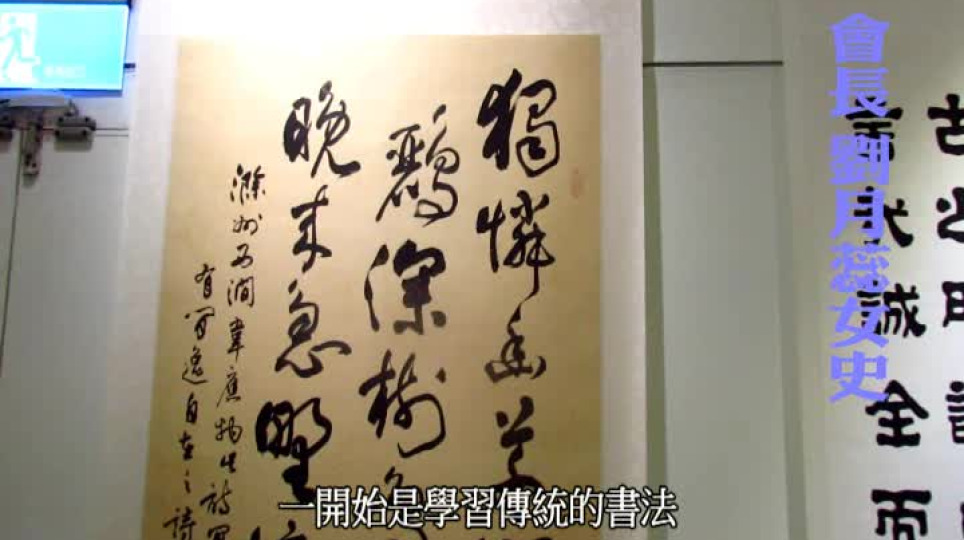 會長 劉月蕊女史
古之所謂
言哉誠全而
獨憐幽草
鸝深樹
晚來急野
滁州西澗韋應物此詩寫
有閒逸自在之詩
一開始是學習傳統的書法